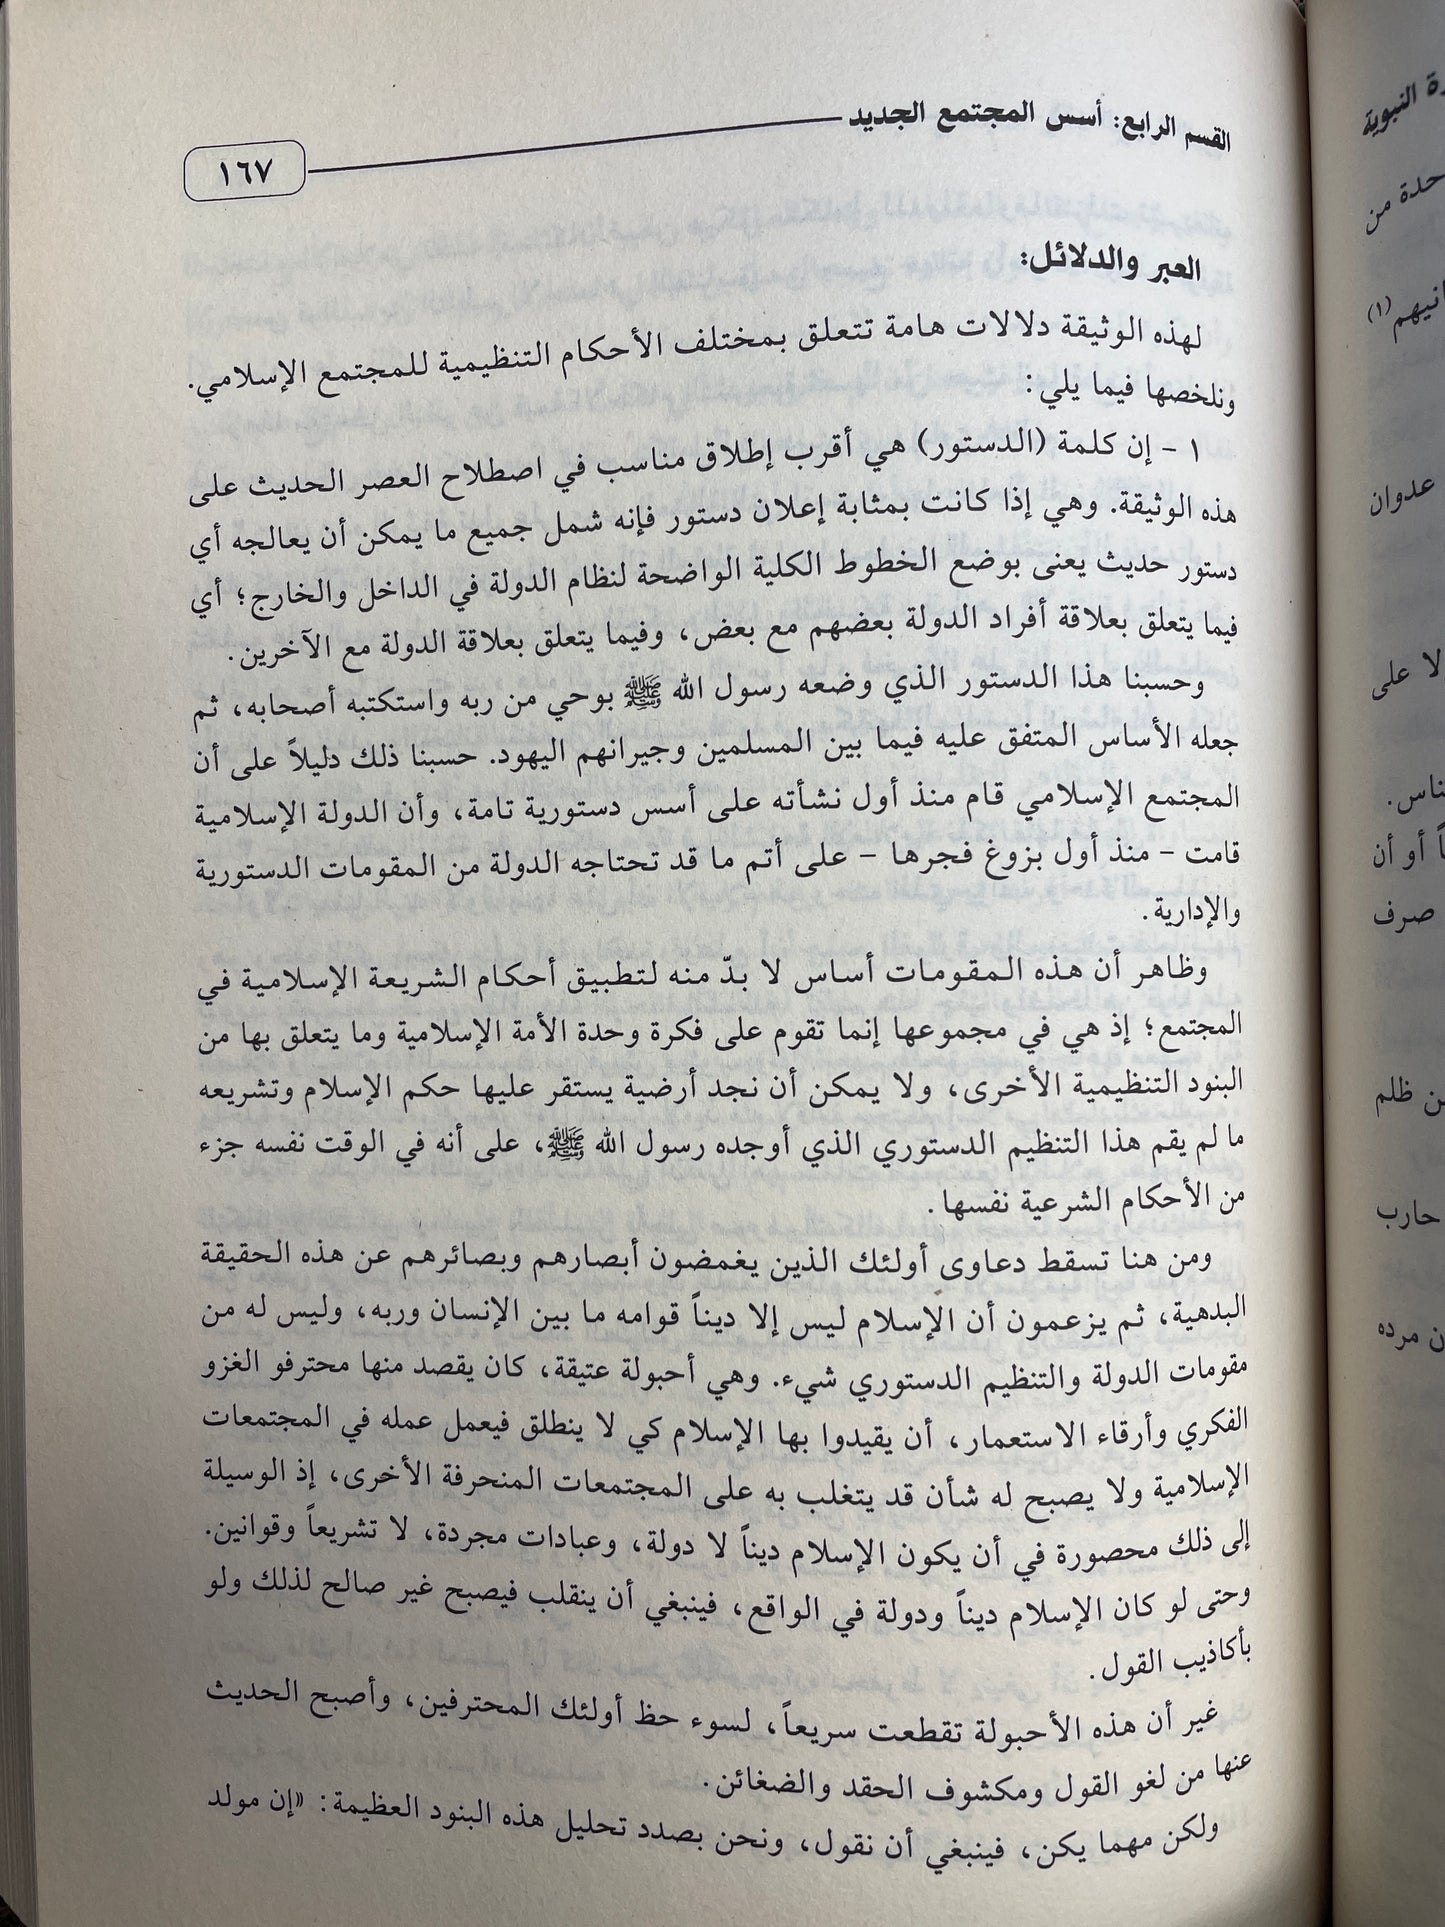 القسم الرابع: أسس المجتمع الجديد
١٦٧
العبر والدلائل:
لهذه الوثيقة دلالات هامة تتعلق بمختلف الأحكام التنظيمية للمجتمع الإسلامي.
ونلخصها فيما يلي:
١ - إن كلمة (الدستور) هي أقرب إطلاق مناسب في اصطلاح العصر الحديث على
هذه الوثيقة. وهي إذا كانت بمثابة إعلان دستور فإنه شمل جميع ما يمكن أن يعالجه أي
دستور حديث يعنى بوضع الخطوط الكلية الواضحة لنظام الدولة في الداخل والخارج؛ أي
فيما يتعلق بعلاقة أفراد الدولة بعضهم مع بعض، وفيما يتعلق بعلاقة الدولة مع الآخرين.
وحسبنا هذا الدستور الذي وضعه رسول الله ﷺ بوحي من ربه واستكتبه أصحابه، ثم
جعله الأساس المتفق عليه فيما بين المسلمين وجيرانهم اليهود. حسبنا ذلك دليلاً على أن
المجتمع الإسلامي قام منذ أول نشأته على أسس دستورية تامة، وأن الدولة الإسلامية
قامت - منذ أول بزوغ فجرها - على أتم ما قد تحتاجه الدولة من المقومات الدستورية
والإدارية.
وظاهر أن هذه المقومات أساس لا بدّ منه لتطبيق أحكام الشريعة الإسلامية في
المجتمع؛ إذ هي في مجموعها إنما تقوم على فكرة وحدة الأمة الإسلامية وما يتعلق بها من
البنود التنظيمية الأخرى، ولا يمكن أن نجد أرضية يستقر عليها حكم الإسلام وتشريعه
ما لم يقم هذا التنظيم الدستوري الذي أوجده رسول الله ﷺ، على أنه في الوقت نفسه جزء
من الأحكام الشرعية نفسها.
ومن هنا تسقط دعاوى أولئك الذين يغمضون أبصارهم وبصائرهم عن هذه الحقيقة
البدهية، ثم يزعمون أن الإسلام ليس إلا ديناً قوامه ما بين الإنسان وربه، وليس له من
مقومات الدولة والتنظيم الدستوري شيء. وهي أحبولة عتيقة، كان يقصد منها محترفو الغزو
الفكري وأرقاء الاستعمار، أن يقيدوا بها الإسلام كي لا ينطلق فيعمل عمله في المجتمعات
الإسلامية ولا يصبح له شأن قد يتغلب به على المجتمعات المنحرفة الأخرى، إذ الوسيلة
إلى ذلك محصورة في أن يكون الإسلام ديناً لا دولة، وعبادات مجردة، لا تشريعاً وقوانين.
وحتى لو كان الإسلام ديناً ودولة في الواقع، فينبغي أن ينقلب فيصبح غير صالح لذلك ولو
بأكاذيب القول.
غير أن هذه الأحبولة تقطعت سريعاً، لسوء حظ أولئك المحترفين، وأصبح الحديث
عنها من لغو القول ومكشوف الحقد والضغائن.
ولكن مهما يكن، فينبغي أن نقول، ونحن بصدد تحليل هذه البنود العظيمة: «إن مولد
النبوية
حدة من
انيهم(١)
عدوان
لا على
ناس.
أو أن
صرف
ن ظلم
حارب
ن مرده